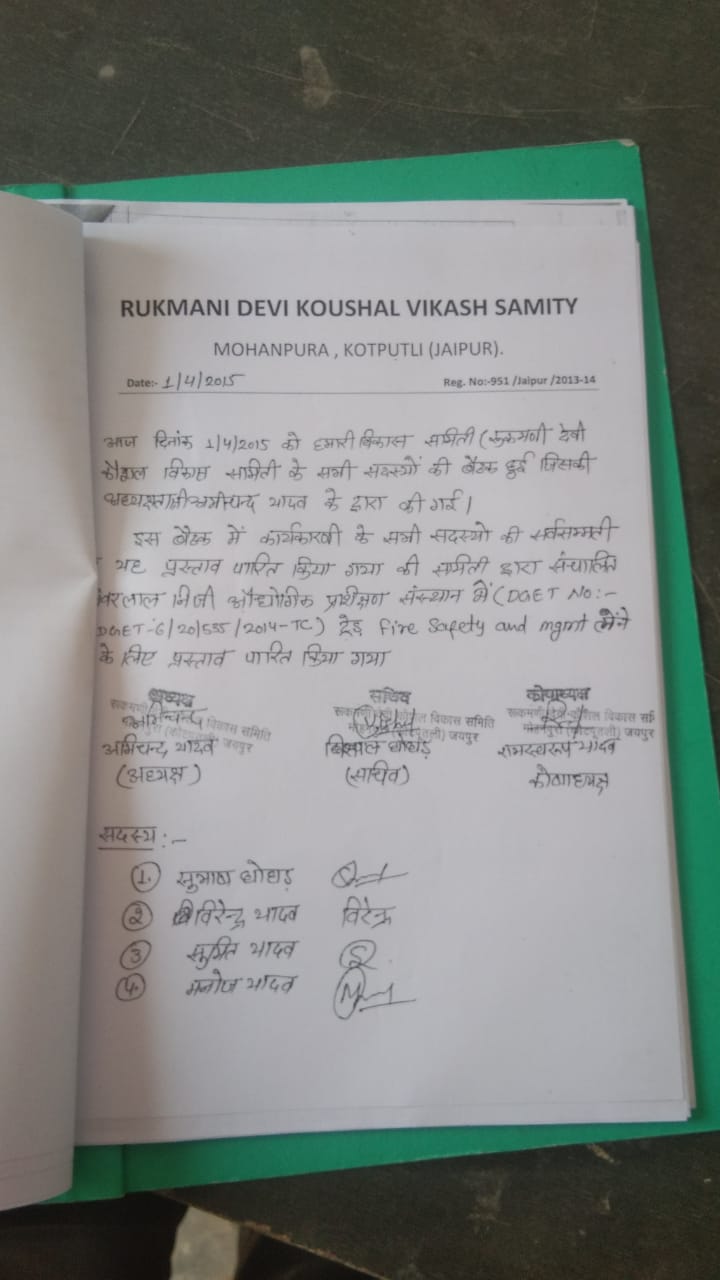 RUKMANI DEVI KOUSHAL VIKASH SAMITY
MOHANPURA , KOTPUTLI (JAIPUR).
Date:- 1/4/2015 Reg. No:-951 /Jaipur /2013-14
आज दिनांक 1/4/2015 को हमारी विकास समिति (रूकमणी देवी
कौशल विकास समिति के सभी सदस्यों की बैठक हुई जिसकी
अमीचन्द यादव के द्वारा की गई।
इस बैठक में कार्यकारणी के सभी सदस्यो की सर्वसम्मती
यह प्रस्ताव पारित किया गया की समिति द्वारा संचालित
वरलाल निजी औद्योगिक प्रशीक्षण संस्थान में (DGET NO:-
DGET-6/20/555/2014-TC) ट्रेड Fire Safety and mgmt लेने
के लिए प्रस्ताव पारित किया गया
अध्यक्ष सचिव कोषाध्यक्ष
रूकमणी विकास समिति विकास समिति कौशल विकास समि
(कोटपूतली) जयपुर जयपुर मोहनपुरा (कोटपूतली) जयपुर
अमिचन्द यादव घोघड़ रामस्वरूप यादव
(अध्यक्ष) (सचिव) कोषाध्यक्ष
सदस्य :-
1. सुभाष घोघड़
2 विरेन्द्र यादव विरेन्द्र
3 सुमित यादव
4. मनोज यादव